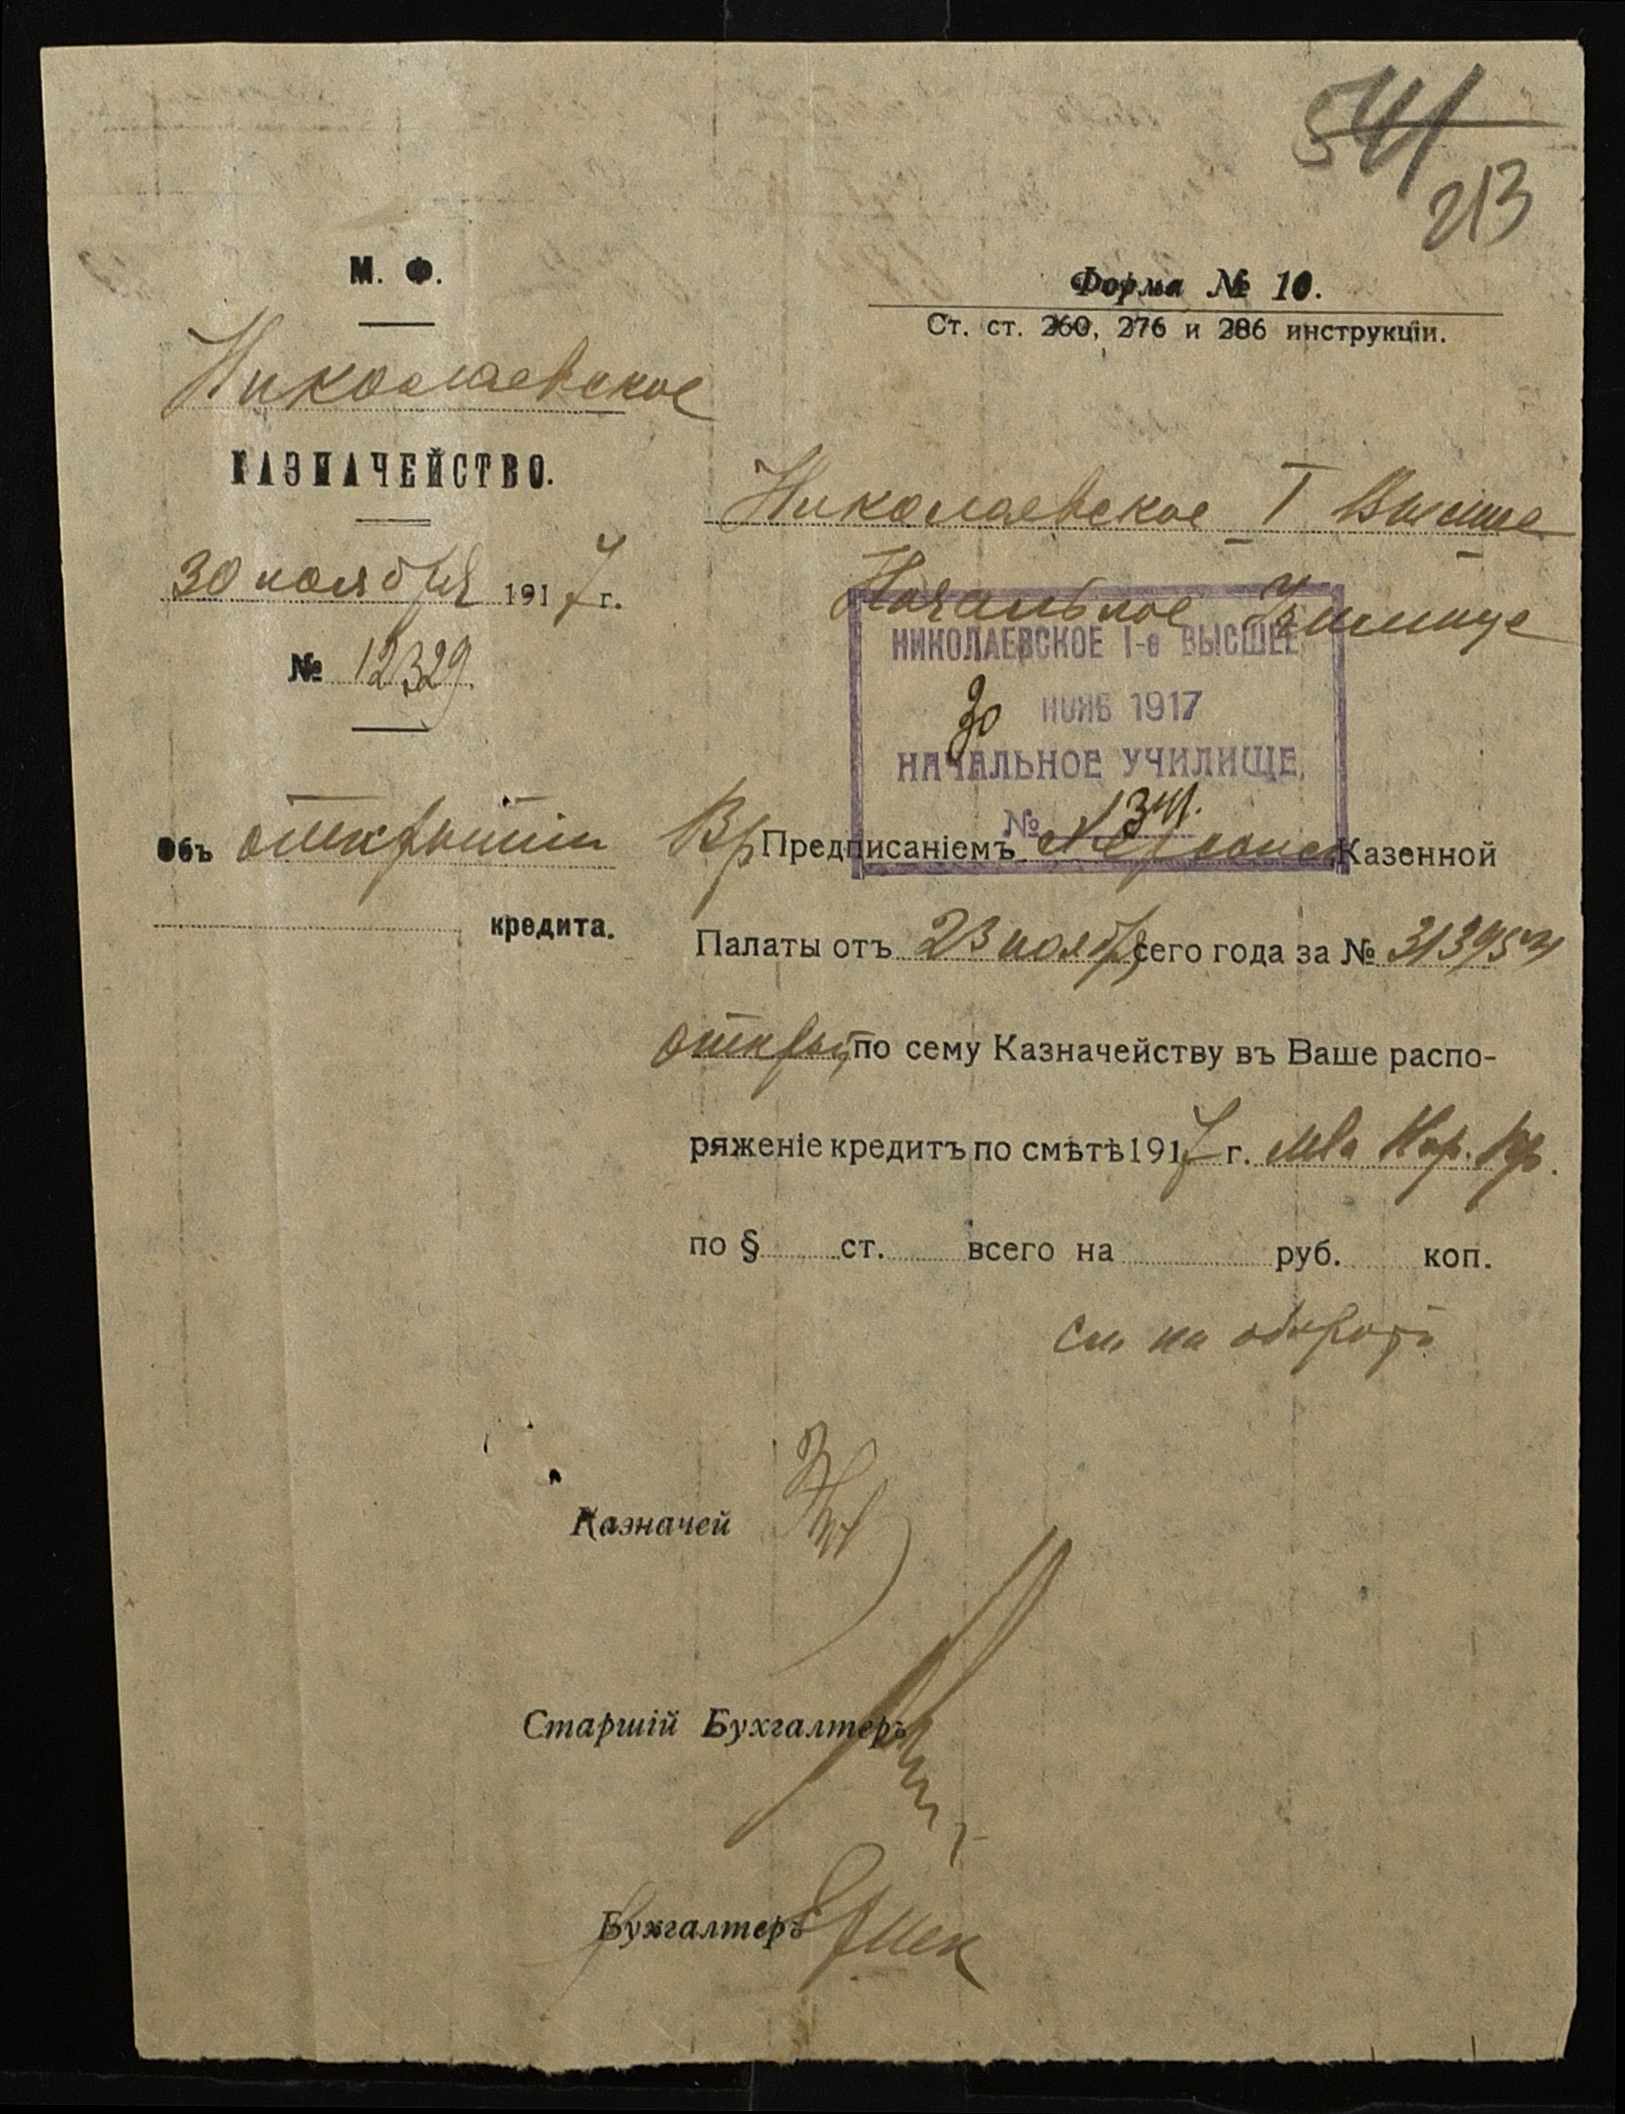 541
213
М. Ф.
Форма № 10.
Ст. ст. 260, 276 и 286 инструкціи.
Николаевское
КАЗНАЧЕЙСТВО.
30 ноября 1917 г.
№ 12329.
Николаевское I Высшее
Начальное Училище
НИКОЛАЕВСКОЕ I-е ВЫСШЕЕ
30 НОЯБ 1917
НАЧАЛЬНОЕ УЧИЛИЩЕ
№
Объ открытіи
кредита.
Предписаніемъ Херсонск Казенной
Палаты отъ 23 ноября сего года за №
открыт по сему Казначейству въ Ваше распо-
ряженіе кредитъ по смѣтѣ 1917 г. М-ва Нар. Пр.
по § ст. всего на руб. коп.
см. на оборотѣ
Казначей
Старшій Бухгалтеръ
Бухгалтеръ